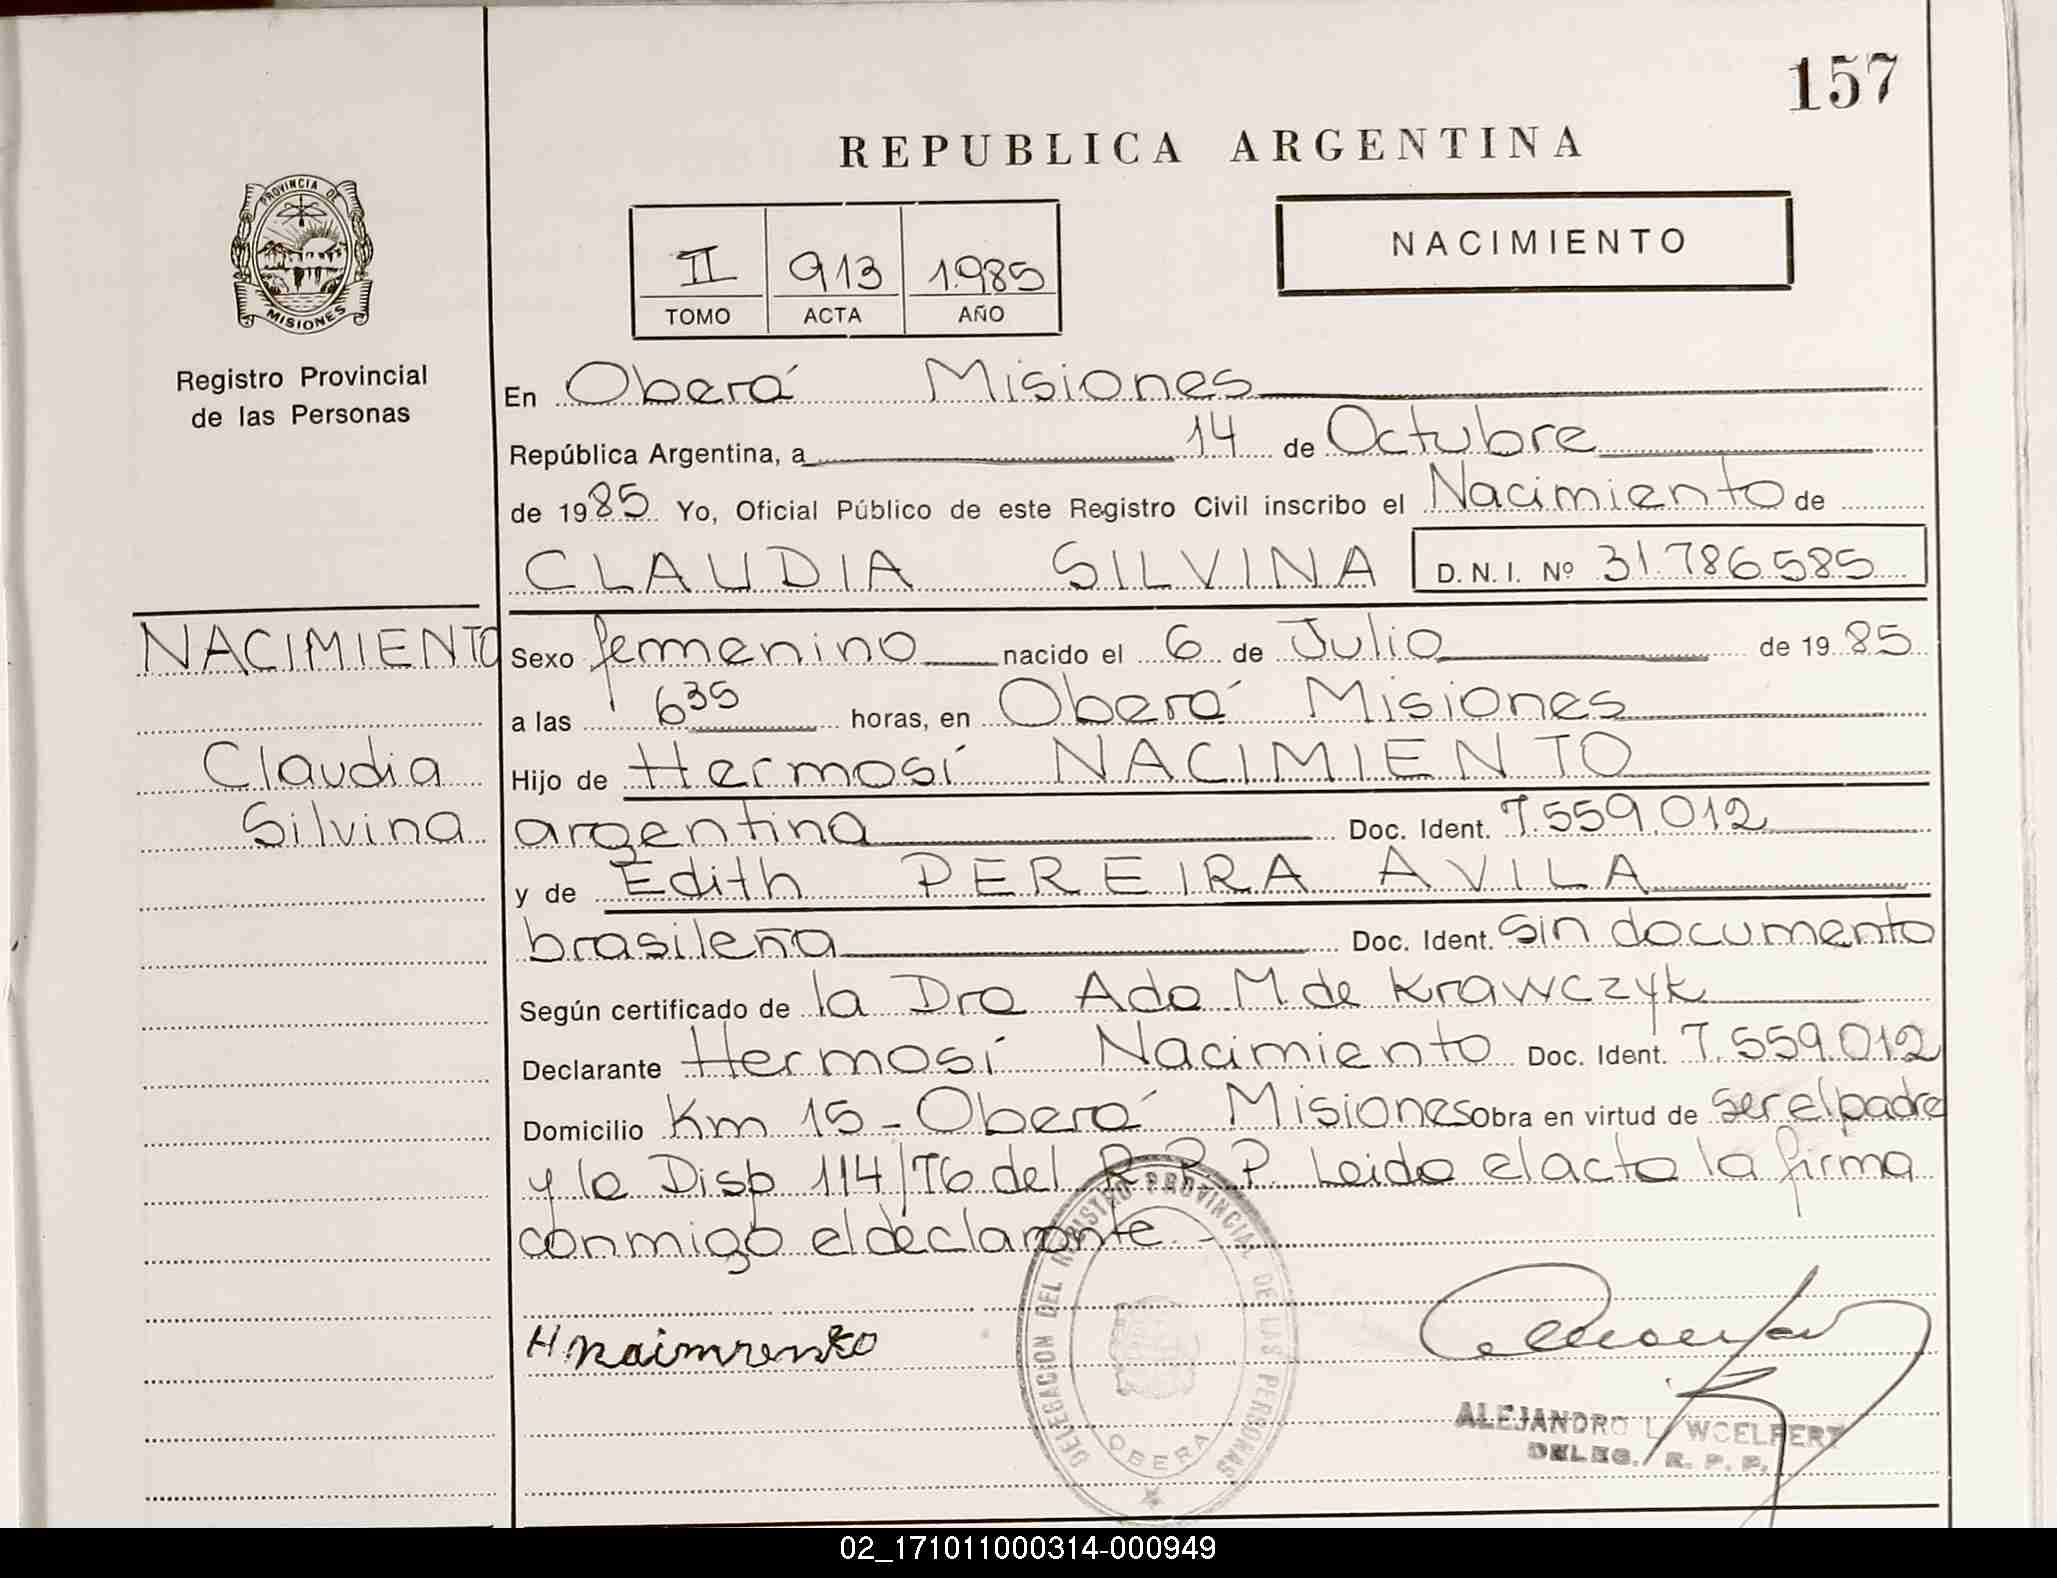 157
REPUBLICA ARGENTINA
PROVINCIA DE
MISIONES
Registro Provincial
de las Personas
II 913 1.985
TOMO ACTA AÑO
NACIMIENTO
En Oberá Misiones
República Argentina, a 14 de Octubre
de 1985 Yo, Oficial Público de este Registro Civil inscribo el Nacimiento de
CLAUDIA SILVINA D. N. I. Nº 31.786.585
NACIMIENTO
Claudia
Silvina
Sexo femenino nacido el 6 de Julio de 1985
a las 6 35 horas, en Oberá Misiones
Hijo de Hermosí NACIMIENTO
argentina Doc. Ident. 7.559.012
y de Edith PEREIRA AVILA
brasileña Doc. Ident. Sin documento
Según certificado de la Dra Ada M. de Krawczyk
Declarante Hermosí Nacimiento Doc. Ident. 7.559.012
Domicilio Km 15 - Oberá Misiones obra en virtud de ser el padre
y la Disp 114/76 del R. P. P. Leida el acta la firma
conmigo el declarante -
H. naimrento
DELEGACION DEL REGISTRO PROVINCIAL DE LAS PERSONAS
OBERA
ALEJANDRO L. WOELFERT
DELEG. R. P. P.
02_171011000314-000949